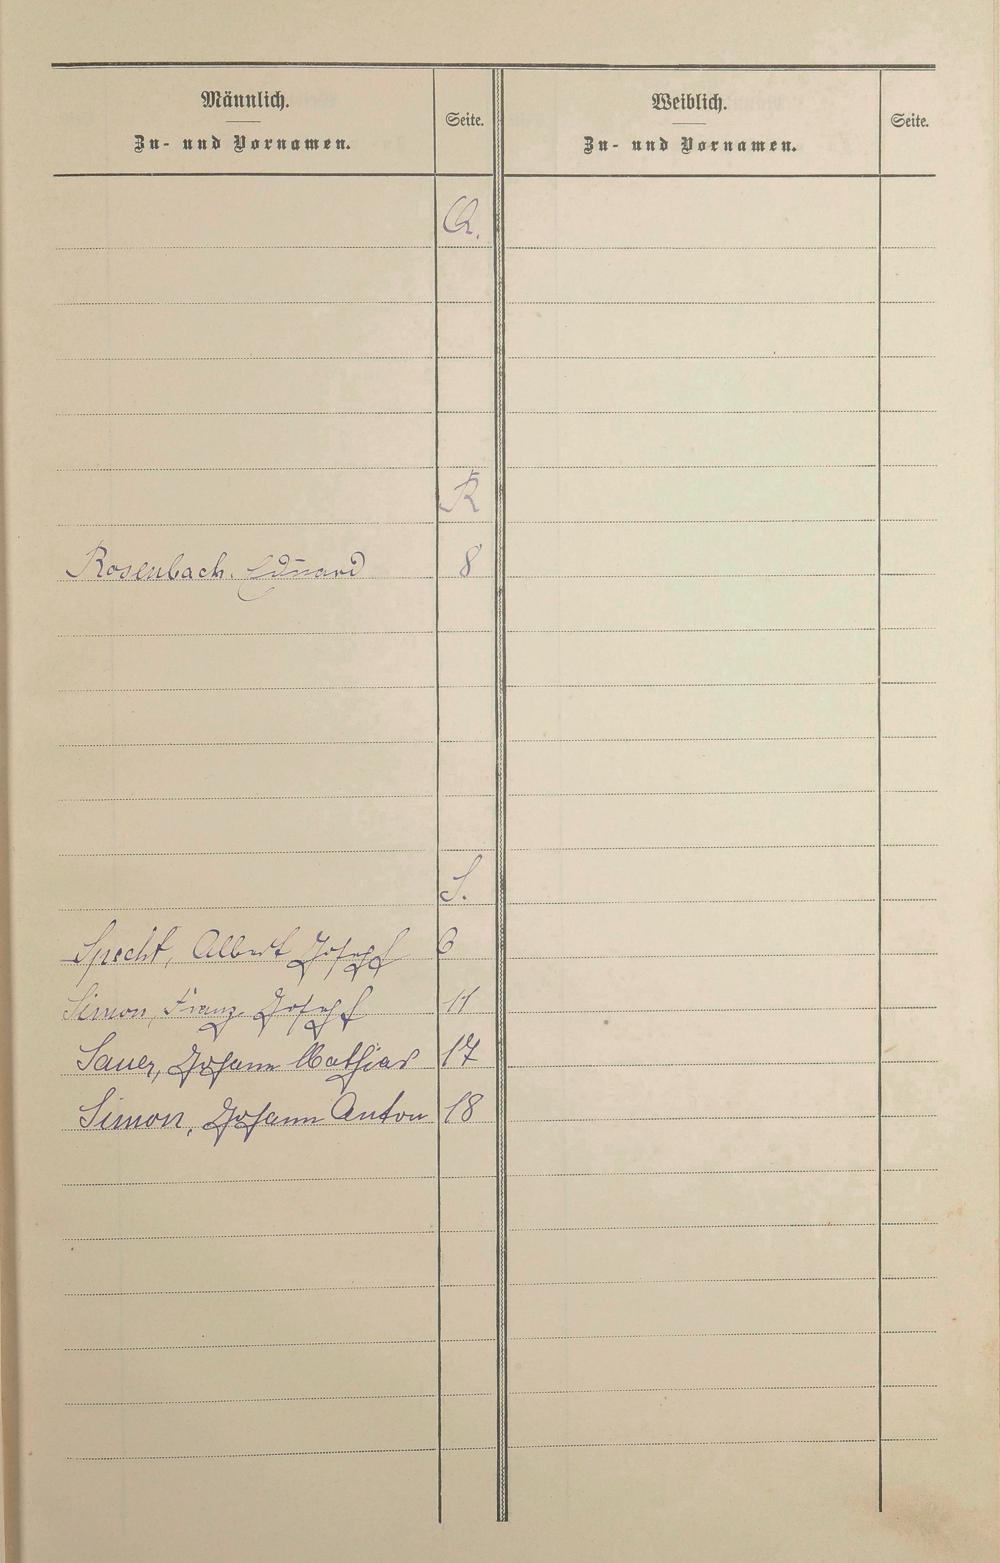 Männlich.
Zu- und Vornamen.
Seite.
Weiblich.
Zu- und Vornamen.
Seite.
Q.
R
Rosenbach. Eduard 8
S.
Specht, Albert Josef 6
Simon, Franz Josef 11
Sauer, Johann Mathias 17
Simon, Johann Anton 18